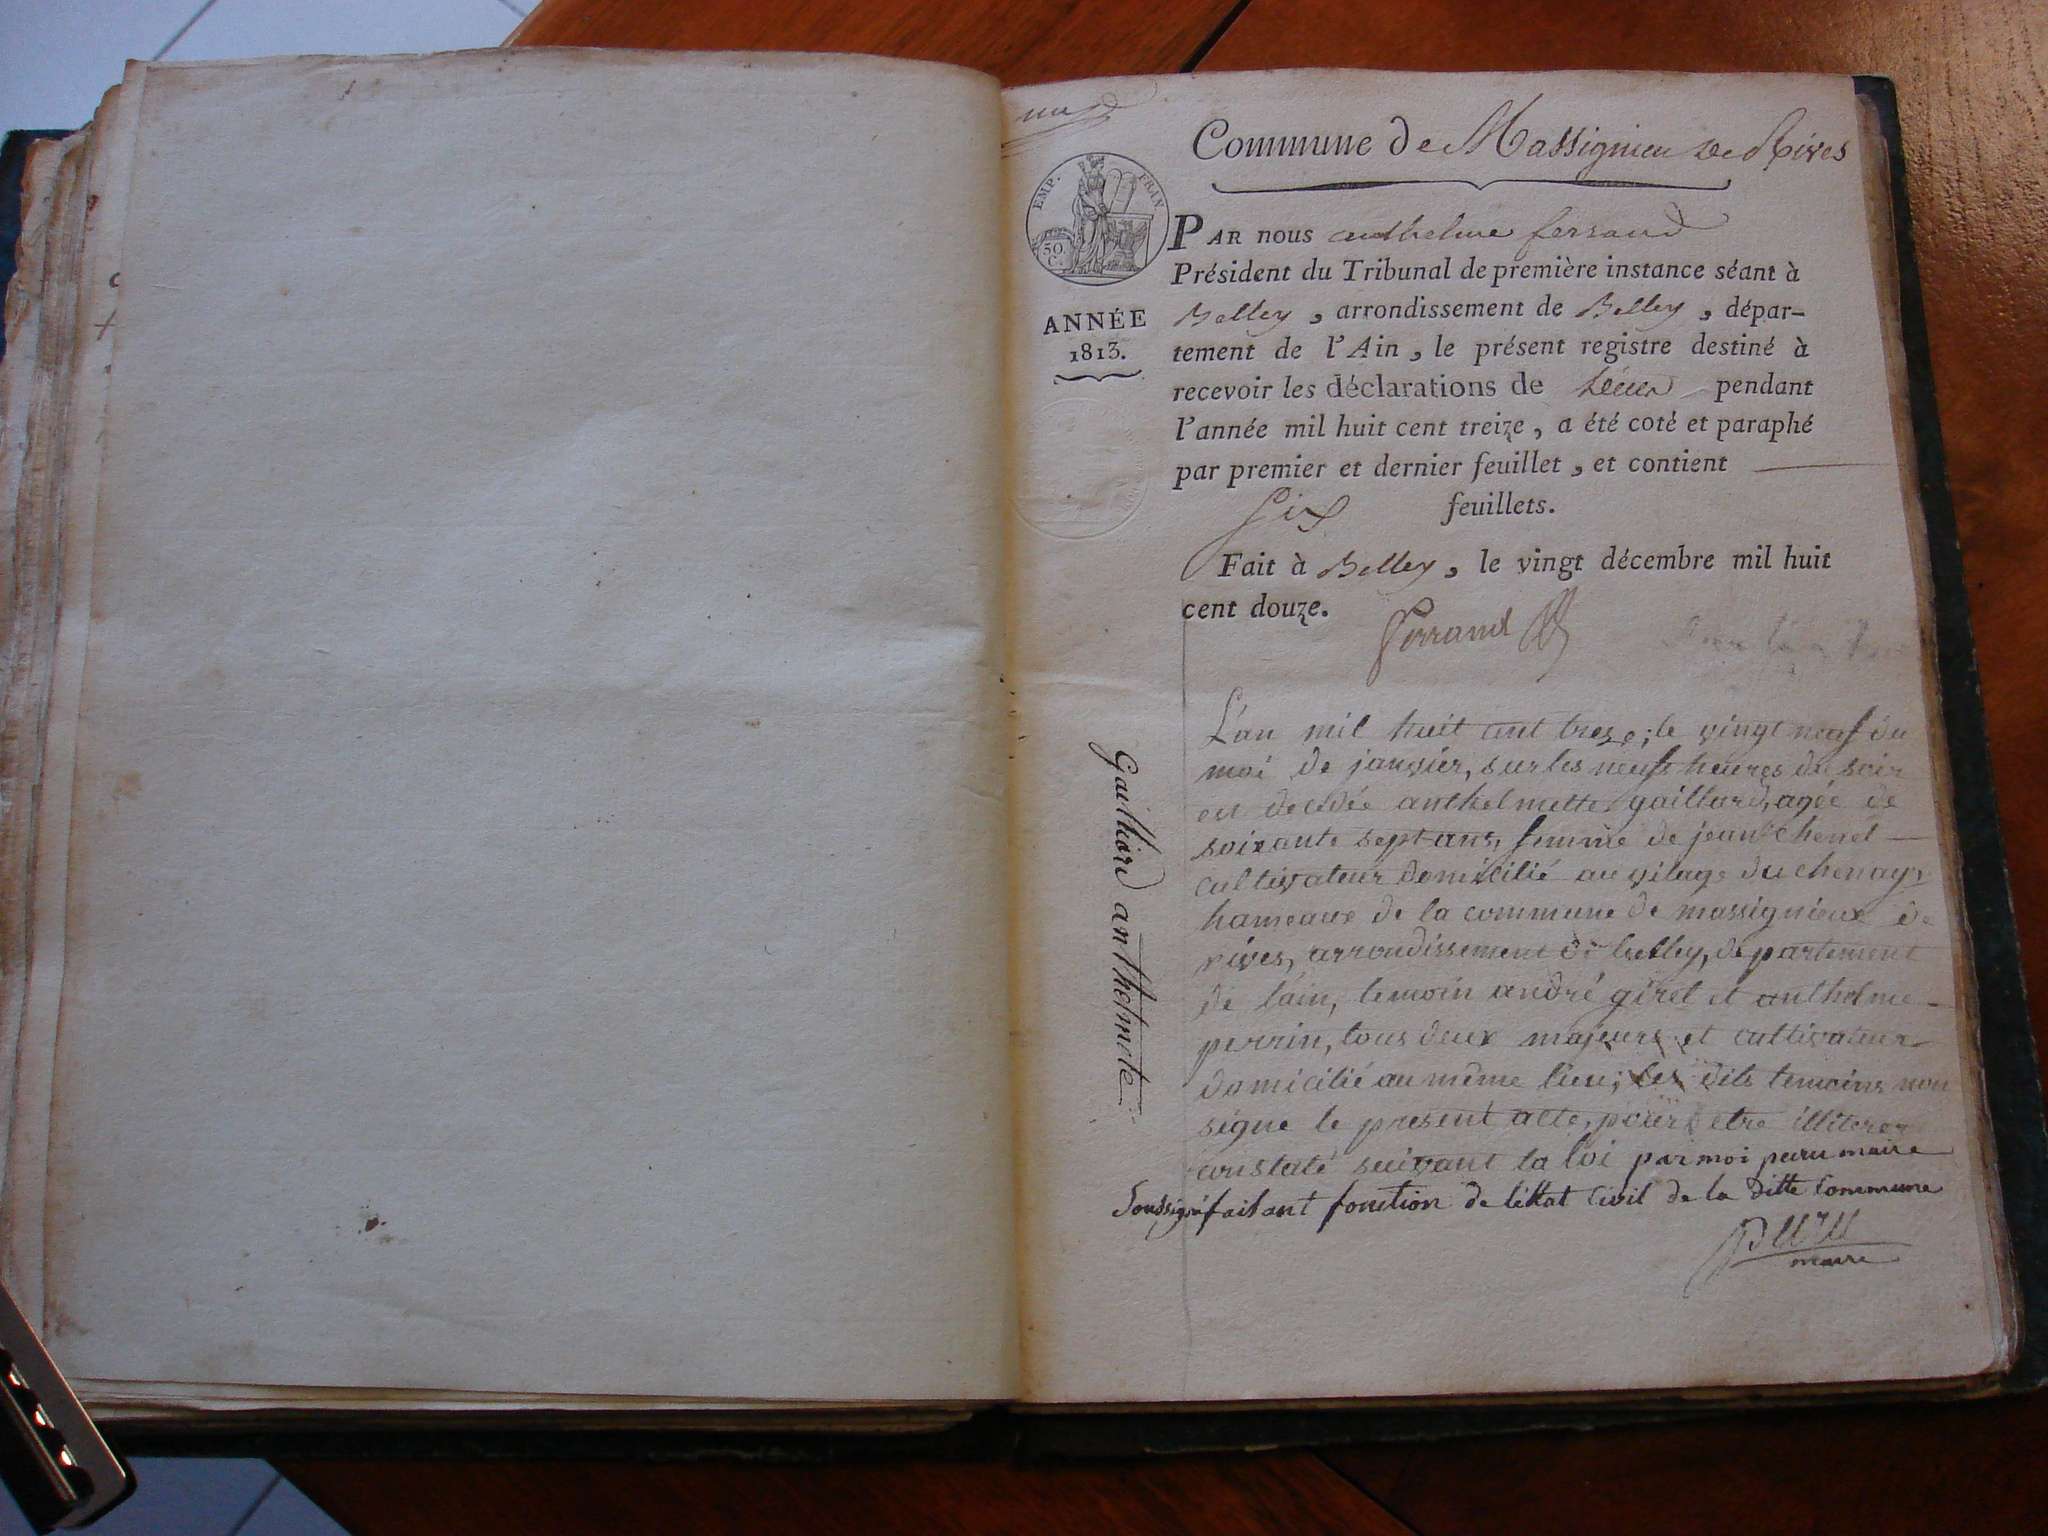 Commune de Massignieu de Rives
EMP. FRAN
50
C.
ANNÉE
1813.
PAR nous anthelme ferrand
Président du Tribunal de première instance séant à
Belley, arrondissement de Belley, dépar-
tement de l'Ain, le présent registre destiné à
recevoir les déclarations de décès pendant
l'année mil huit cent treize, a été coté et paraphé
par premier et dernier feuillet, et contient
six feuillets.
Fait à Belley, le vingt décembre mil huit
cent douze.
Ferrand
Gailliard anthelmete
L'an mil huit cent treze; le vingt neuf du
moi de janvier, sur les neufs heures du soir
est decedée anthelmette gaillard, agée de
soixante sept ans, femme de jean chenel
cultivateur domicilié au vilage du chenay
hameaux de la commune de massignieux de
rives, arrondissement de belley, departement
de lain, temoin andré giret et anthelme
perrin, tous deux majeurs et cultivateur
domicilié au même lieu; les dits temoins non
signe le present acte, pour etre illiterer
constaté suivant la loi par moi peru maire
soussigné faisant fonction de léttat Civil de la ditte Commune
peru
maire